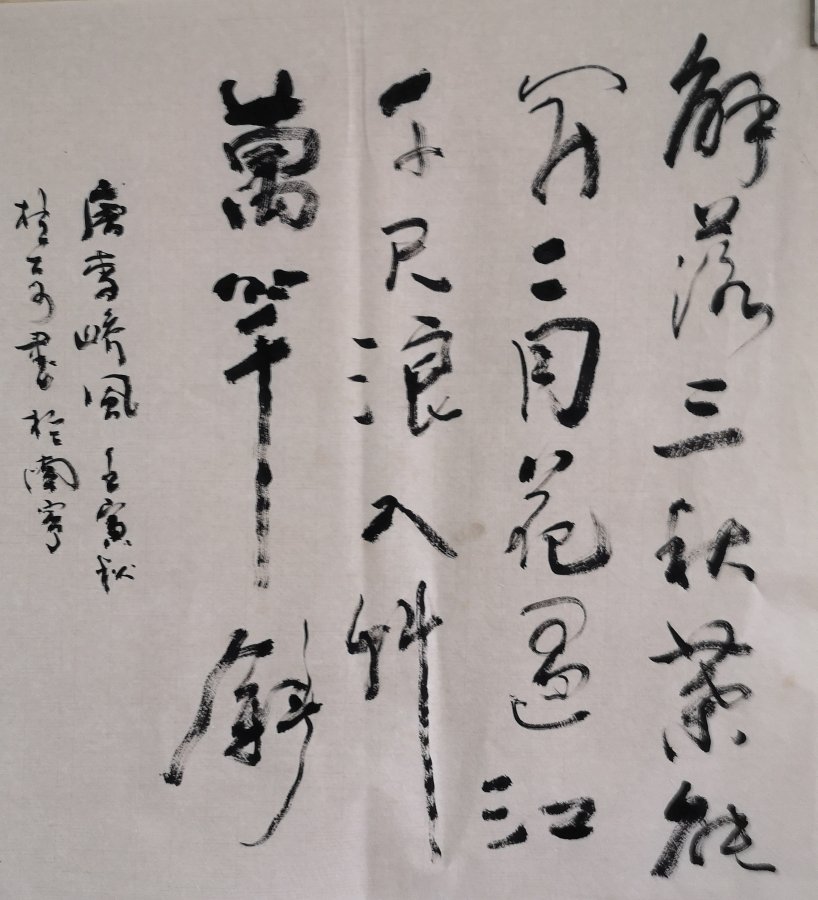 解落三秋葉能
開二月花過江
千尺浪入竹
萬竿斜
唐李嶠風壬寅秋
書於南寧